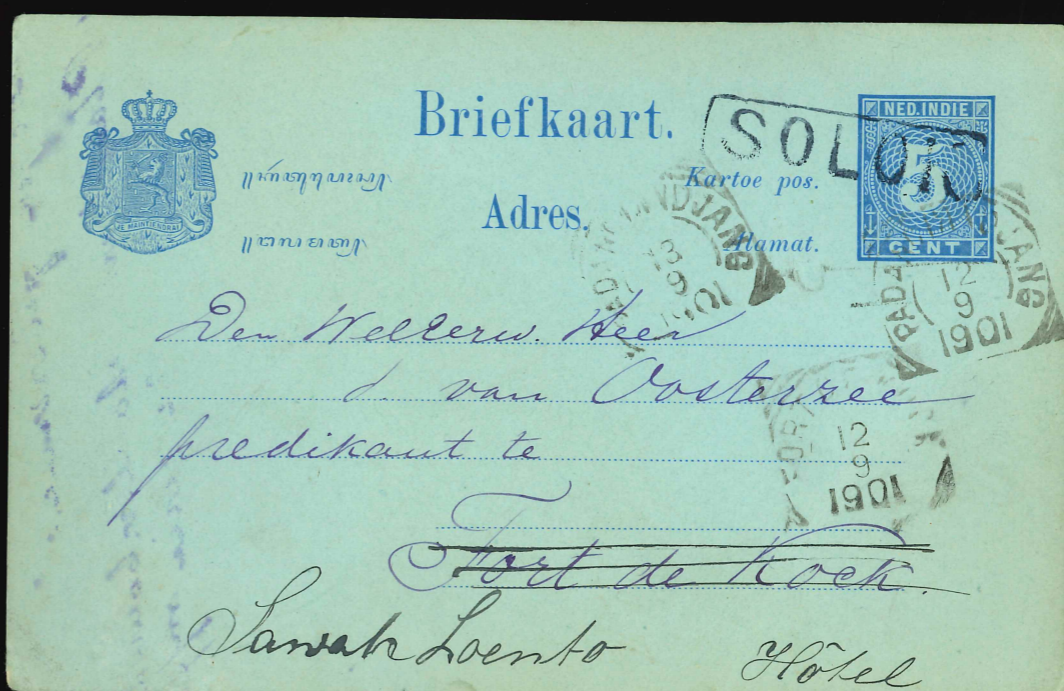 Briefkaart.
Kartoe pos.
Adres.
Alamat.
JE MAINTIENDRAI
SOLOK
NED. INDIE
5
CENT
PADANGPANDJANG
13
9
1901
PADANGPANDJANG
12
9
1901
FORT DE KOCK
12
9
1901
Den Weleerw. Heer
d. van Oosterzee
predikant te
Fort de Kock.
Sawah Loento
Hôtel